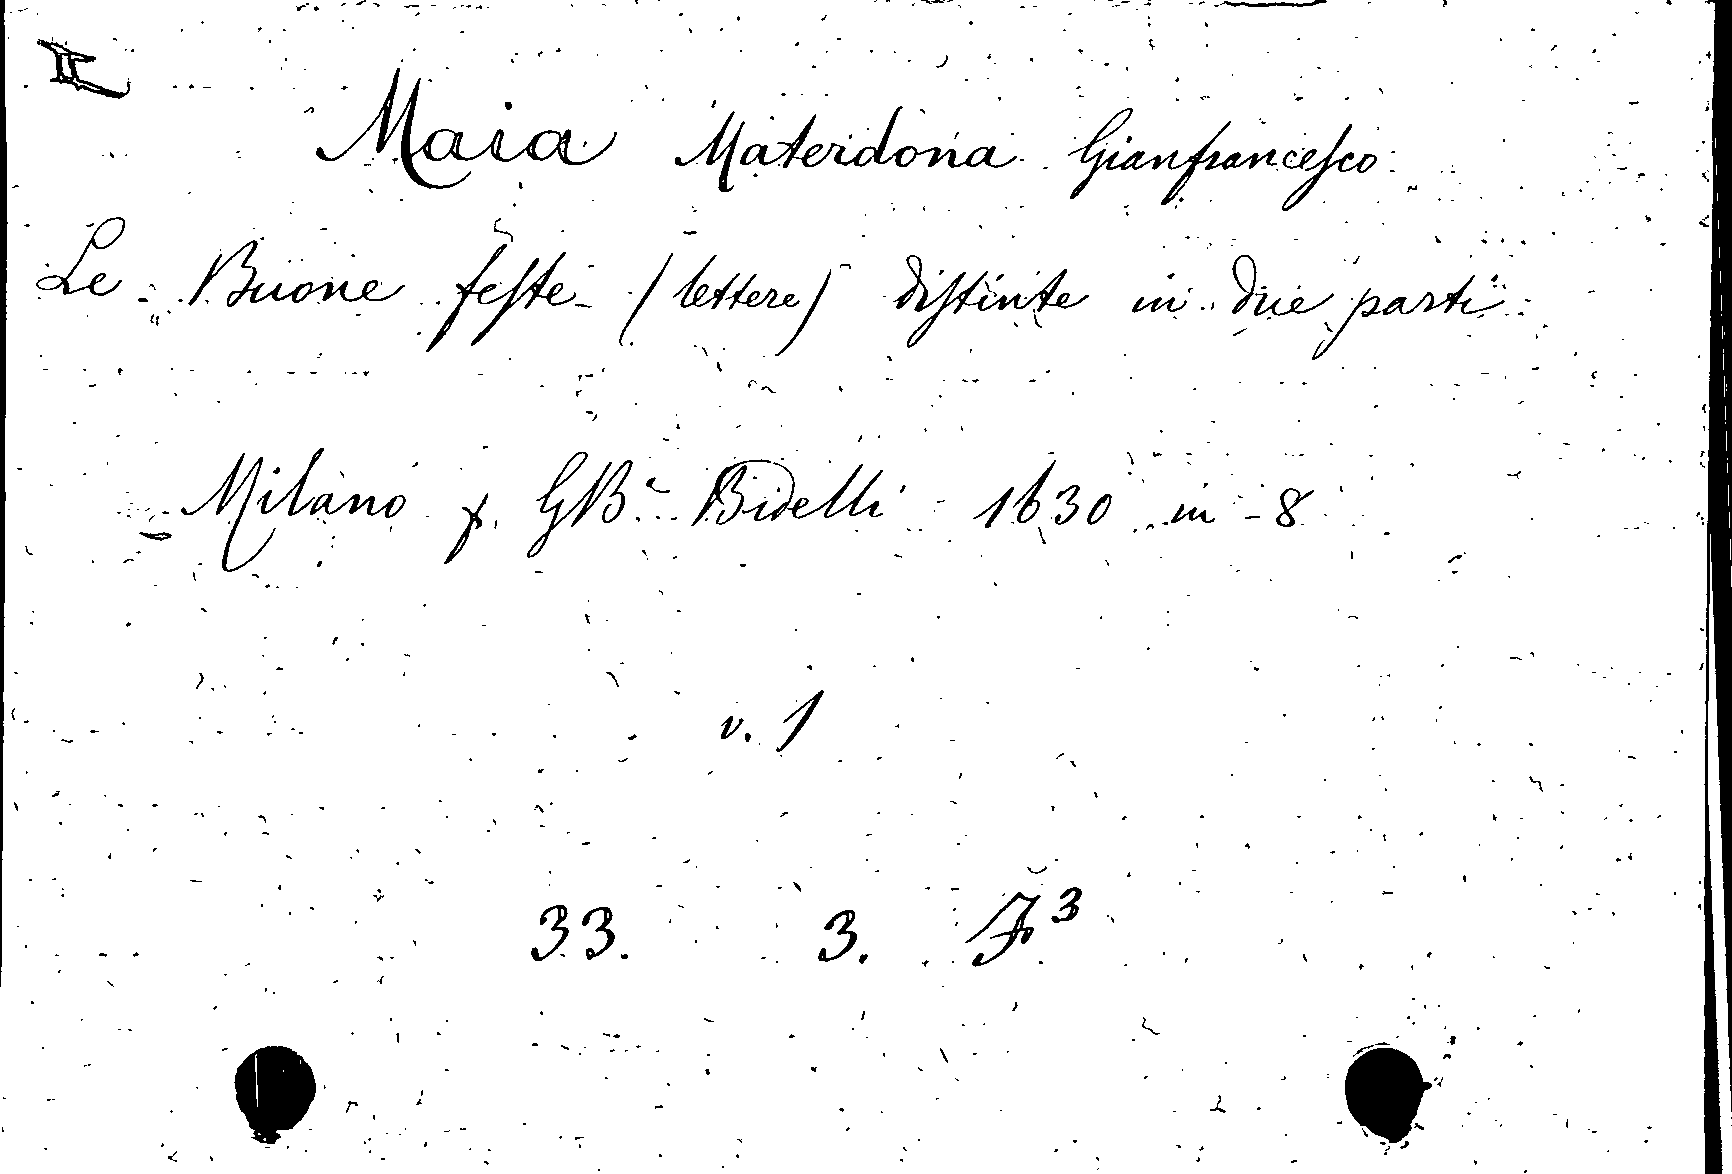 II
Maia Materdona Gianfrancesco
Le Buone feste (lettere) distinte in due parti
Milano p. GBa Bidelli 1630 in 8
v. 1
33. 3. F3